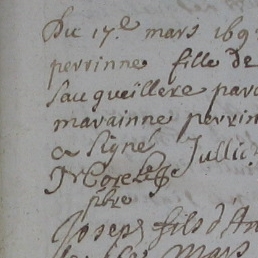 Du 17.e mars 169
perrinne fille de
sauqueillere par
maraine perrin
a signé Jullic
pbre
Joseph fils d'An
Mars